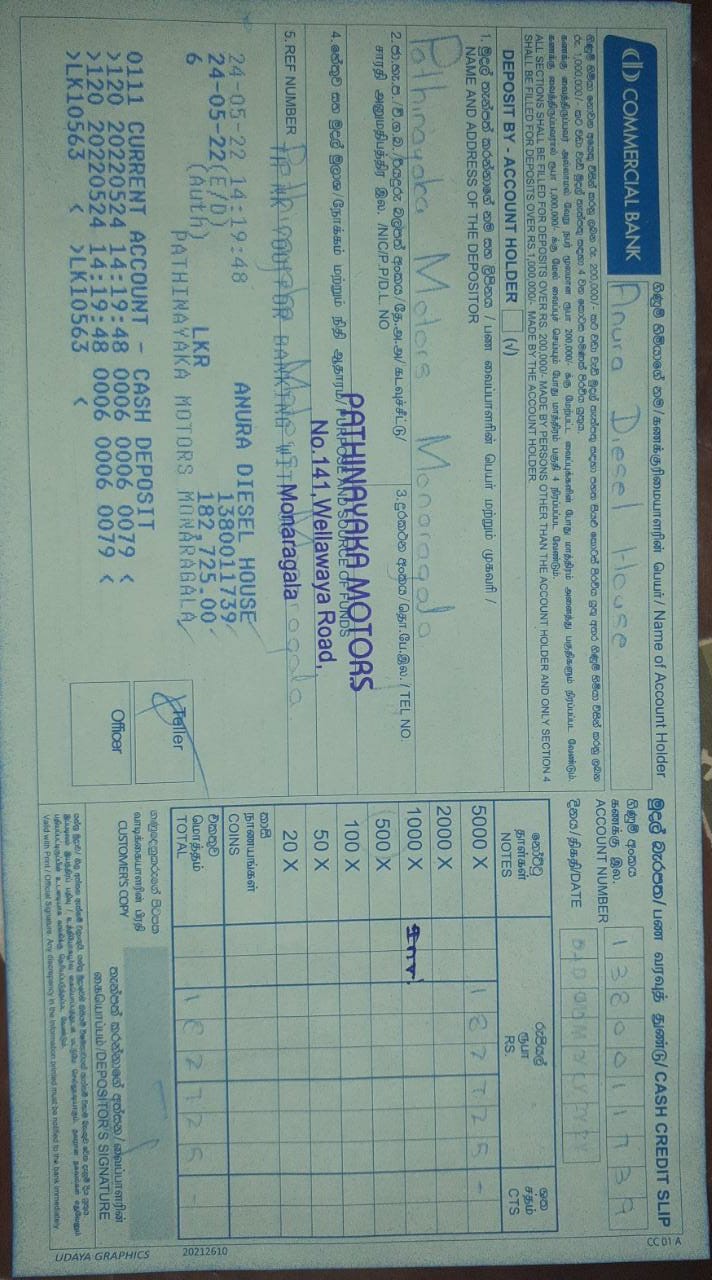 COMMERCIAL BANK
ගිණුම් හිමියාගේ නම / கணக்குரிமையாளரின் பெயர் / Name of Account Holder
Anura Diesel House
ALL SECTIONS SHALL BE FILLED FOR DEPOSITS OVER RS. 200,000/- MADE BY PERSONS OTHER THAN THE ACCOUNT HOLDER AND ONLY SECTION 4
SHALL BE FILLED FOR DEPOSITS OVER RS.1,000,000/- MADE BY THE ACCOUNT HOLDER
DEPOSIT BY - ACCOUNT HOLDER (√)
1. මුදල් තැන්පත් කරන්නාගේ නම සහ ලිපිනය / பண வைப்பாளரின் பெயர் மற்றும் முகவரி /
NAME AND ADDRESS OF THE DEPOSITOR
Pathinayaka Motors Monaragala
/NIC/P.P/D.L. NO
3. දුරකථන අංකය / தொ.பே.இல. / TEL NO.
4. හේතුව සහ මුදල් මූලය / நோக்கம் மற்றும் நிதி ஆதாரம் / PURPOSE AND SOURCE OF FUNDS
PATHINAYAKA MOTORS
No.141, Wellawaya Road,
Monaragala
5. REF NUMBER
THANK YOU FOR BANKING WITH
24-05-22 14:19:48 ANURA DIESEL HOUSE
24-05-22(E/D) 1380011739
6 (Auth) LKR 182,725.00
PATHINAYAKA MOTORS MONARAGALA
0111 CURRENT ACCOUNT - CASH DEPOSIT
>120 20220524 14:19:48 0006 0006 0079 <
>120 20220524 14:19:48 0006 0006 0079 <
>LK10563 < >LK10563 <
Teller
Officer
මුදල් බැරපත / பண வரவுத் துண்டு / CASH CREDIT SLIP
CC 01 A
ගිණුම් අංකය
கணக்கு இல.
ACCOUNT NUMBER
1380011739
දිනය / திகதி / DATE
නෝට්ටු
நாள்கள்
NOTES
රුපියල්
ரூபா
RS.
ශත
சதம்
CTS
5000 X 182725 -
2000 X
1000 X
500 X
100 X
50 X
20 X
කාසි
நாணயங்கள்
COINS
එකතුව
மொத்தம்
TOTAL 182725 -
ගනුදෙනුකරුගේ පිටපත
வாடிக்கையாளரின் பிரதி
CUSTOMER'S COPY
තැන්පත් කරන්නාගේ අත්සන / வைப்பாளரின்
கையொப்பம் / DEPOSITOR'S SIGNATURE
Valid with Print / Official Signature. Any discrepancy in the information printed must be notified to the bank immediately
UDAYA GRAPHICS 20212610